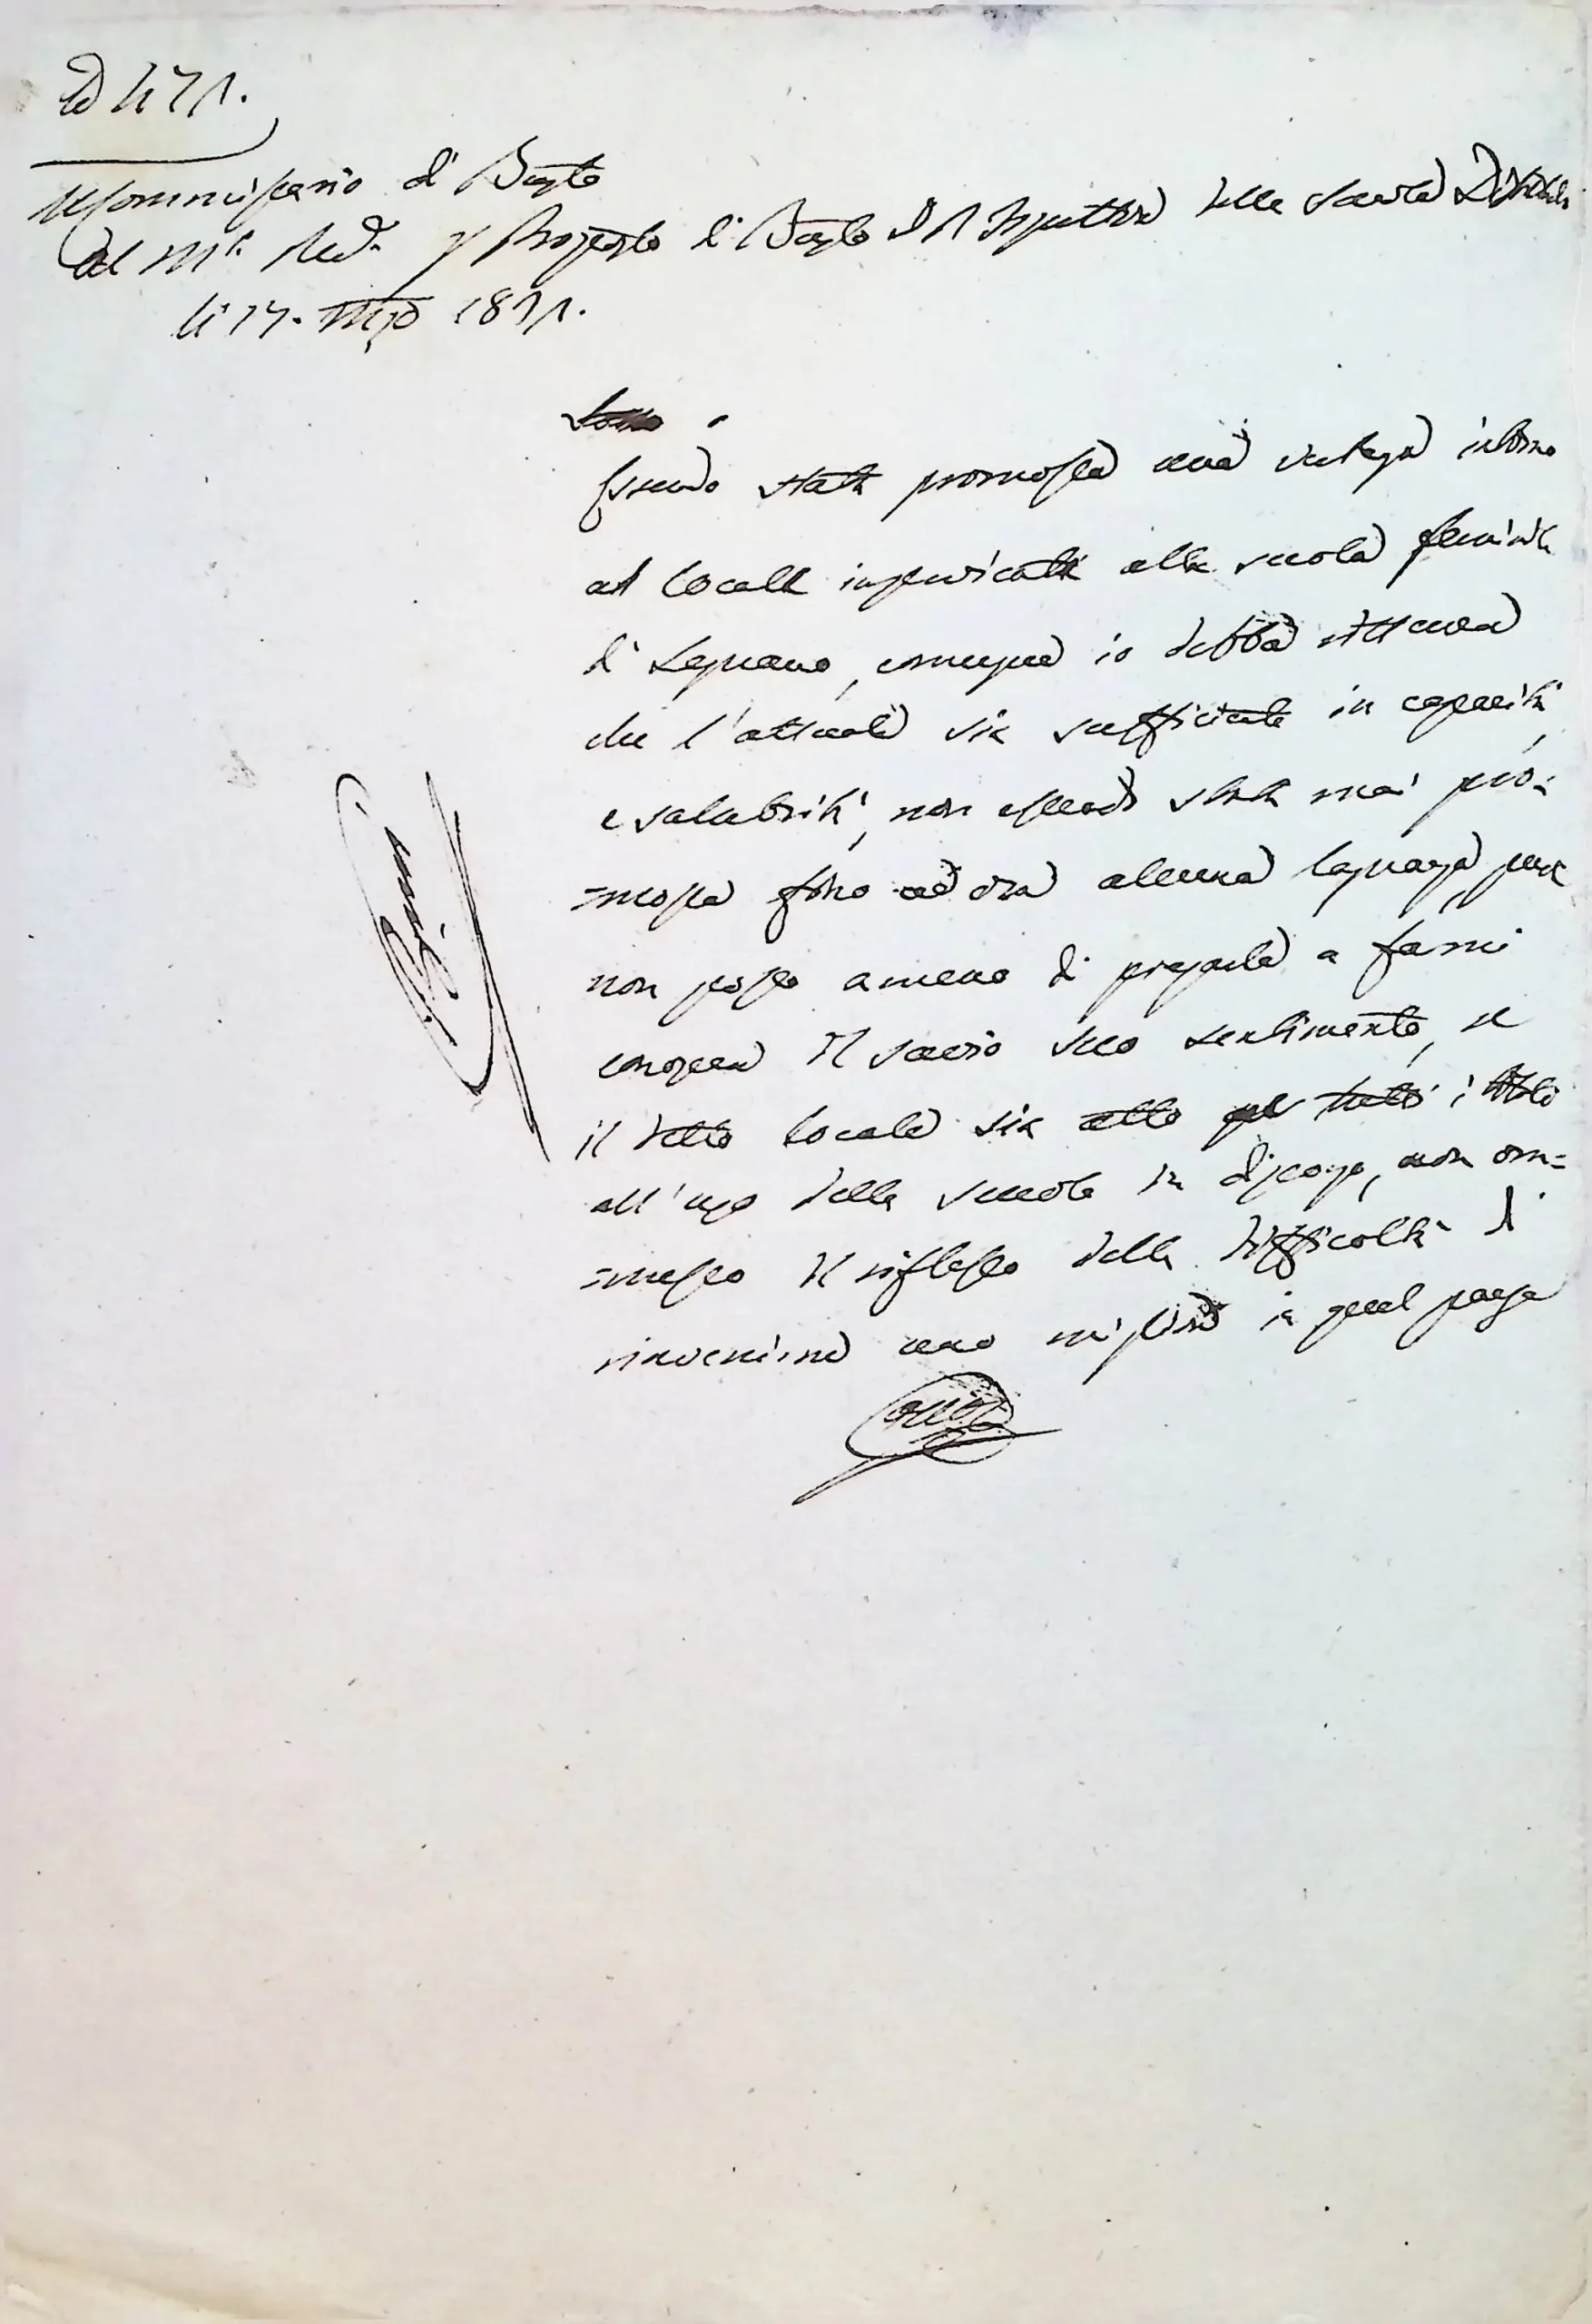 Il Commissario di Busto
Al M.to Rev.do Proposto di Busto I. R. Ispettore delle Scuole Distrettuali
li 17. Mzo 1851.
Essendo stata promossa una vertenza intorno
al locale inserviente alla scuola feminile
di Legnano, comunque io debba ritenere
che l'attuale sia sufficiente in capacità,
e salubrità, non essendo stata mai pro=
=mossa fino ad ora alcuna lagnanza, pure
non posso a meno di pregarla a farmi
conoscere il savio suo sentimento, se
il detto locale sia atto per tutti i titoli
all'uso della scuola in discorso, non om=
=messo il riflesso della difficoltà di
rinvenirne uno migliore in quel paese